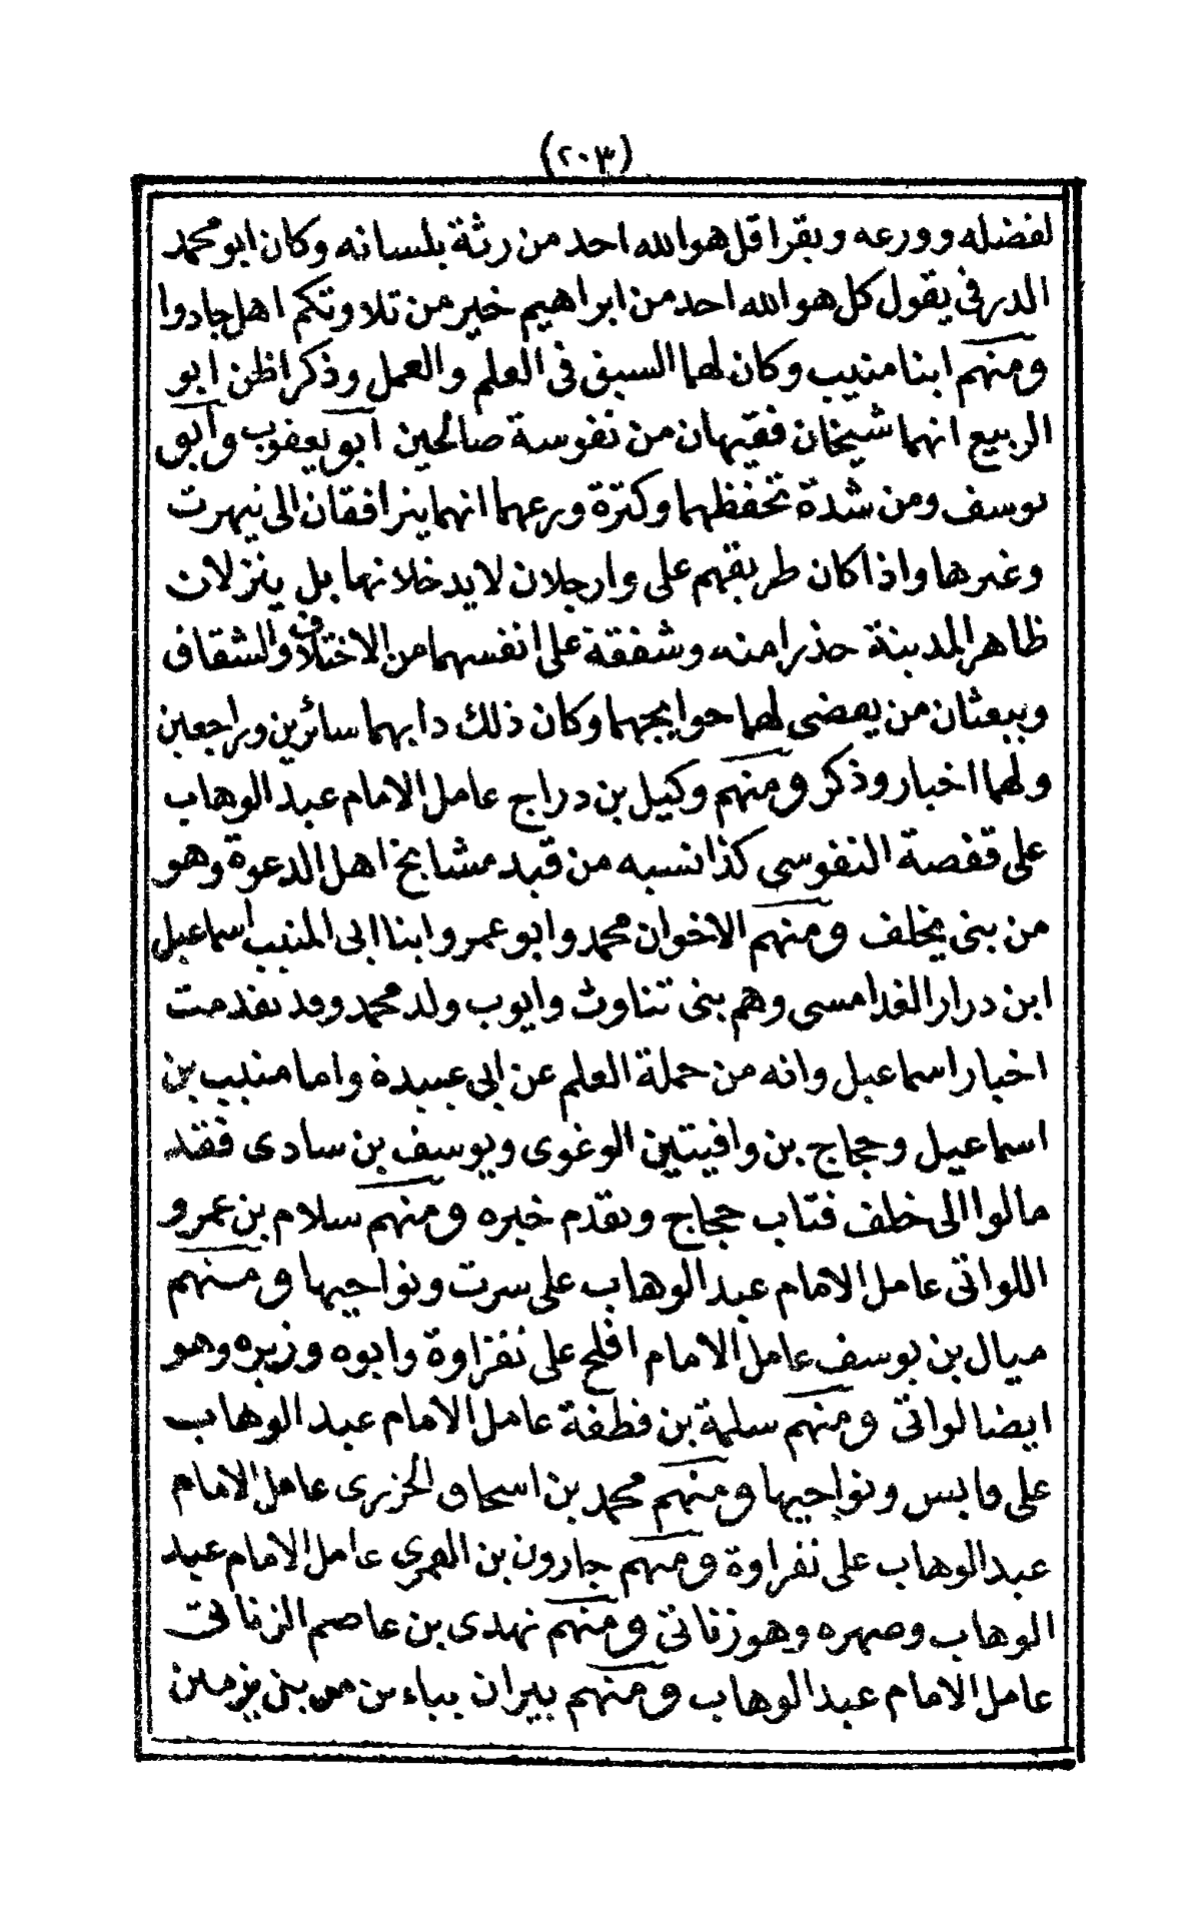 (٢٠٣)
لفضله وورعه ويقرا قل هو الله احد من رثة بلسانه وكان ابو محمد
الدرفى يقول كل هو الله احد من ابراهيم خير من تلاوتكم اهل جادوا
ومنهم ابنا منيب وكان لهما السبق فى العلم والعمل وذكر اظن ابو
الربيع انهما شيخان فقيهان من نفوسة صالحين ابو يعقوب وابو
يوسف ومن شدة تحفظهما وكثرة ورعهما انهما يترافقان الى تيهرت
وغيرها واذا كان طريقهم على وارجلان لا يدخلانها بل ينزلان
ظاهر المدينة حذرا منه وشفقة على انفسهما من الاختلاف والشقاق
ويبعثان من يقضى لهما حوايجهما وكان ذلك دابهما سائرين وراجعين
ولهما اخبار وذكر ومنهم وكيل بن دراج عامل الامام عبد الوهاب
على قفصة النفوسي كذا نسبه من قيد مشايخ اهل الدعوة وهو
من بنى يخلف ومنهم الاخوان محمد وابو عمرو ابنا ابى المنيب اسماعيل
ابن درار الغدامسى وهم بنى تناوت وايوب ولد محمد وقد تقدمت
اخبار اسماعيل وانه من حملة العلم عن ابي عبيدة واما منيب بن
اسماعيل وحجاج بن وافيتين الوغوى ويوسف بن سادى فقد
مالوا الى خلف فتاب حجاج وتقدم خبره ومنهم سلام بن عمرو
اللواتى عامل الامام عبد الوهاب على سرت ونواحيها ومنهم
ميال بن يوسف عامل الامام افلح على نفزاوة وابوه وزيره وهو
ايضا لواتى ومنهم سلمة بن قطفة عامل الامام عبد الوهاب
على قابس ونواحيها ومنهم محمد بن اسحاق الخزرى عامل الامام
عبد الوهاب على نفزاوة ومنهم جارون بن القمري عامل الامام عبد
الوهاب وصهره وهو زناتى ومنهم نهدى بن عاصم الزناتى
عامل الامام عبد الوهاب ومنهم بيران من بنى يزمتن